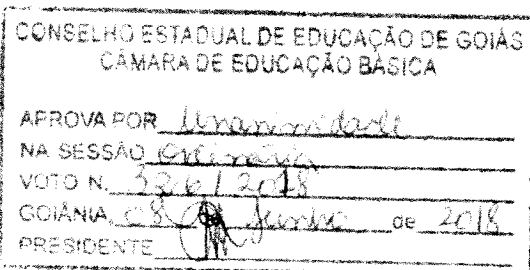 CONSELHO ESTADUAL DE EDUCAÇÃO DE GOIÁS
CÂMARA DE EDUCAÇÃO BÁSICA
APROVA POR Unanimidade
NA SESSÃO Ordinária
VOTO N. 326/2018
GOIÂNIA, 08 de Junho de 2018
PRESIDENTE